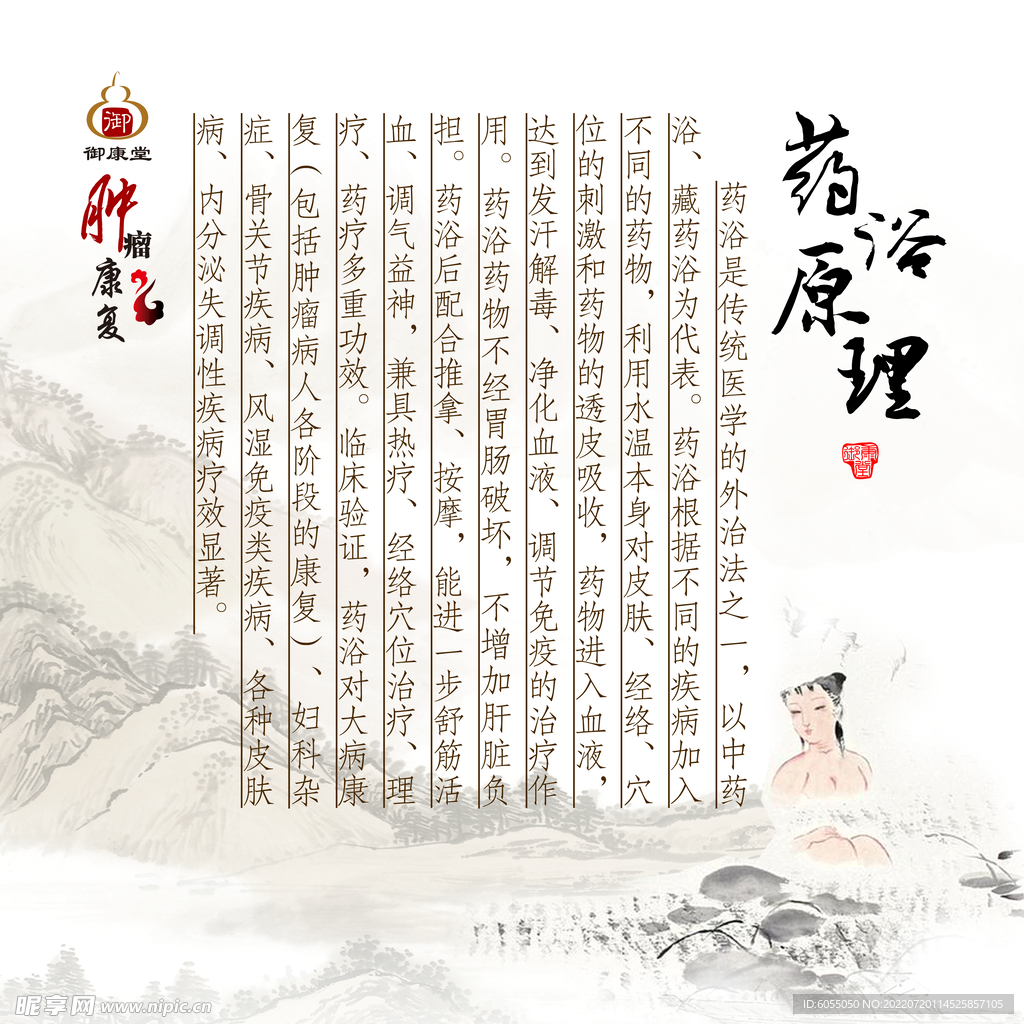 药浴原理
御康堂
药浴是传统医学的外治法之一，以中药
浴、藏药浴为代表。药浴根据不同的疾病加入
不同的药物，利用水温本身对皮肤、经络、穴
位的刺激和药物的透皮吸收，药物进入血液，
达到发汗解毒、净化血液、调节免疫的治疗作
用。药浴药物不经胃肠破坏，不增加肝脏负
担。药浴后配合推拿、按摩，能进一步舒筋活
血、调气益神，兼具热疗、经络穴位治疗、理
疗、药疗多重功效。临床验证，药浴对大病康
复（包括肿瘤病人各阶段的康复）、妇科杂
症、骨关节疾病、风湿免疫类疾病、各种皮肤
病、内分泌失调性疾病疗效显著。
御
御康堂
肿瘤康复
昵享网 www.nipic.cn
ID:6055050 NO:20220720114525857105